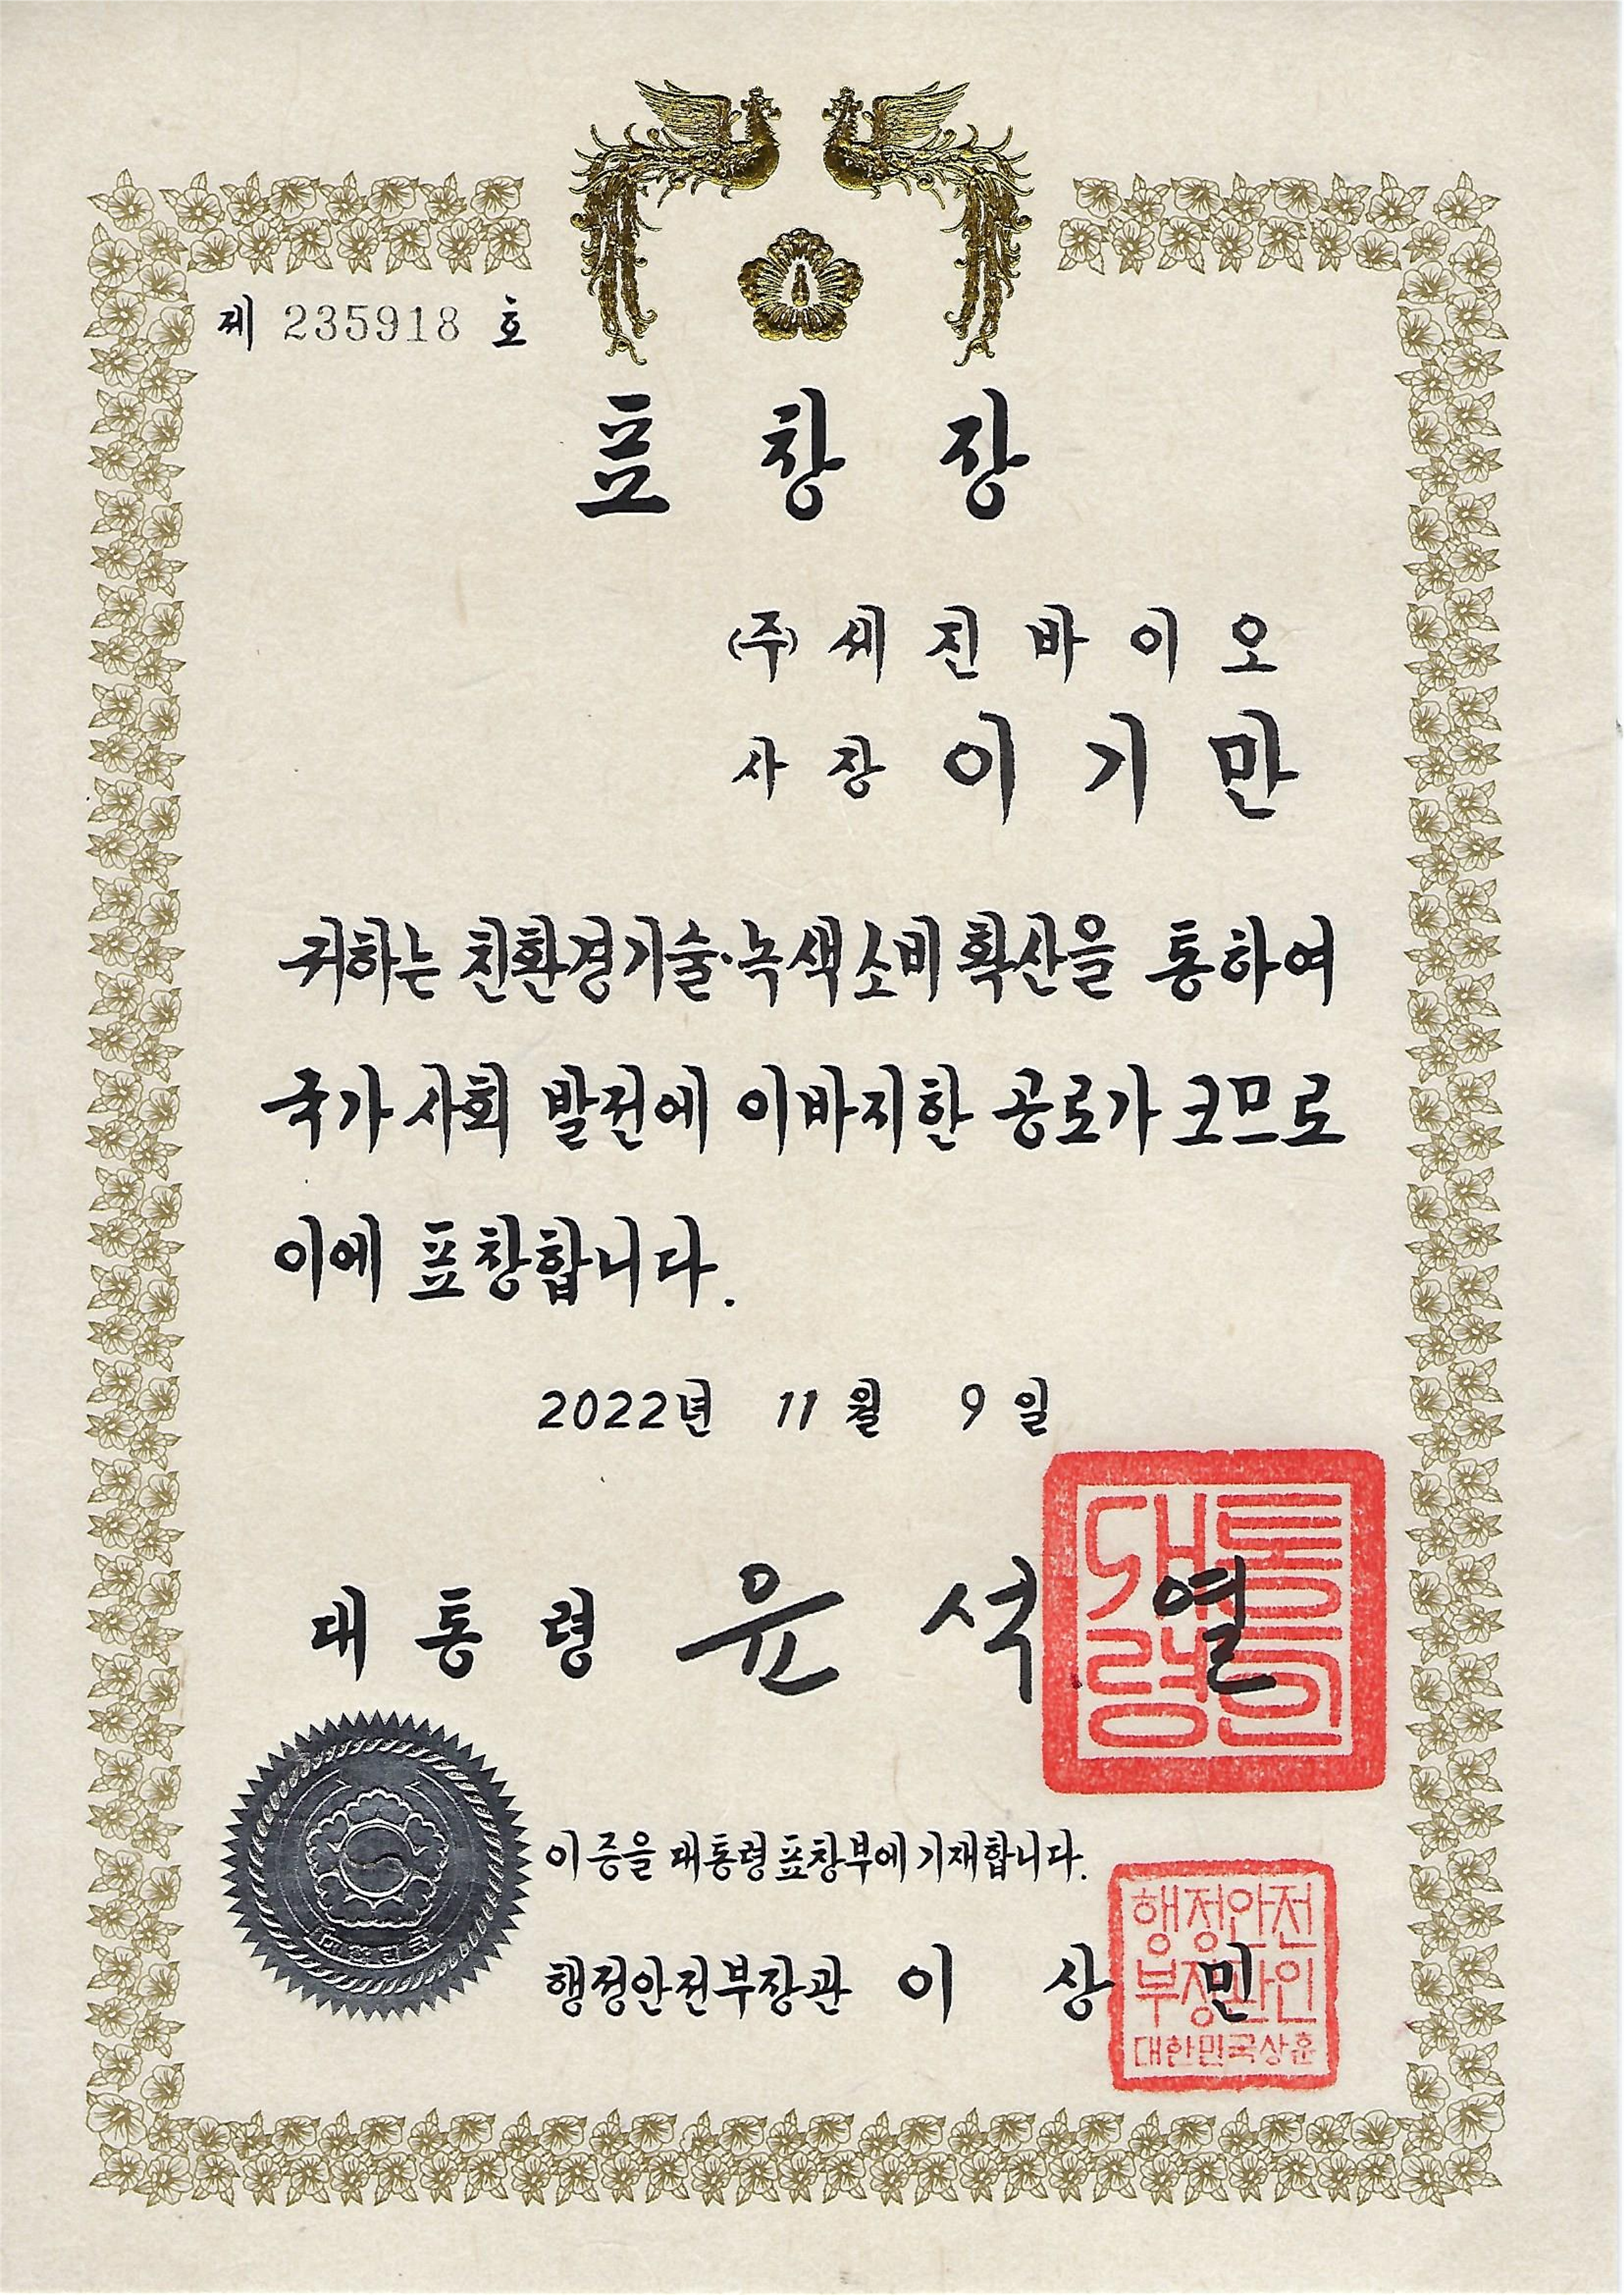 제 235918 호
표 창 장
(주) 세 진 바 이 오
사 장 이 기 만
귀하는 친환경기술·녹색소비 확산을 통하여
국가 사회 발전에 이바지한 공로가 크므로
이에 표창합니다.
2022년 11 월 9 일
대 통 령 윤 석 열
대통
령인
이 증을 대통령표창부에 기재합니다.
행정안전부장관 이 상 민
행정안전
부장관인
대한민국상훈
대한민국